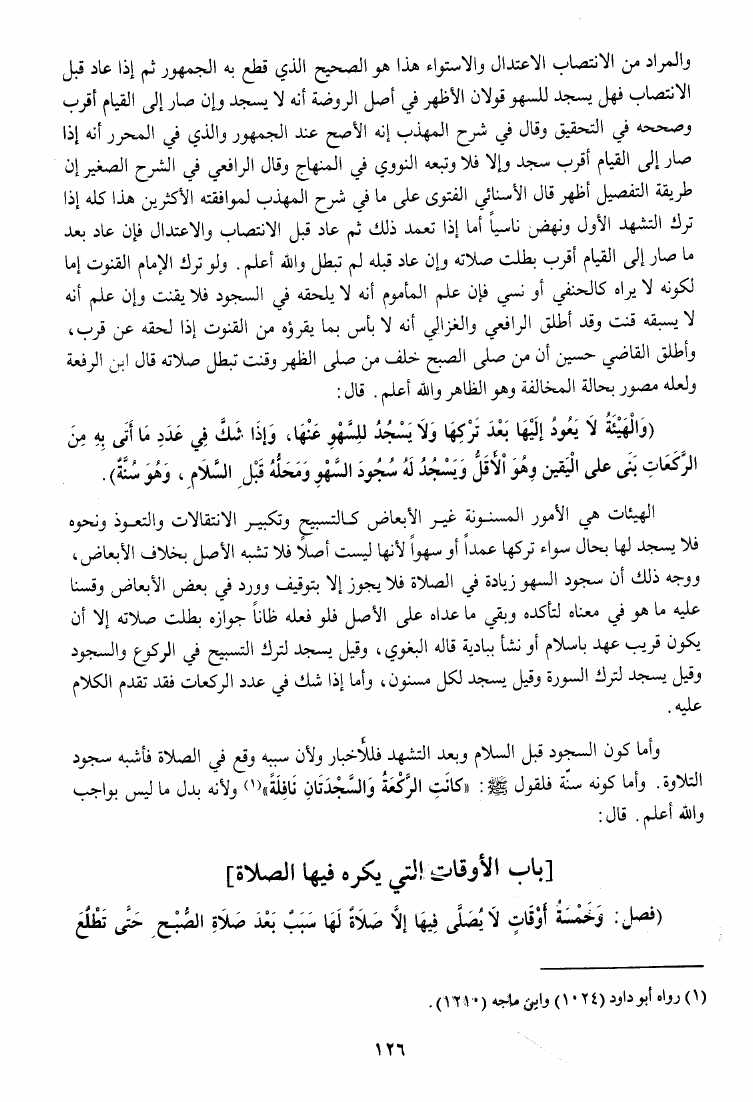 والمراد من الانتصاب الاعتدال والاستواء هذا هو الصحيح الذي قطع به الجمهور ثم إذا عاد قبل
الانتصاب فهل يسجد للسهو قولان الأظهر في أصل الروضة أنه لا يسجد وإن صار إلى القيام أقرب
وصححه في التحقيق وقال في شرح المهذب إنه الأصح عند الجمهور والذي في المحرر أنه إذا
صار إلى القيام أقرب سجد وإلا فلا وتبعه النووي في المنهاج وقال الرافعي في الشرح الصغير إن
طريقة التفصيل أظهر قال الأسنائي الفتوى على ما في شرح المهذب لموافقته الأكثرين هذا كله إذا
ترك التشهد الأول ونهض ناسياً أما إذا تعمد ذلك ثم عاد قبل الانتصاب والاعتدال فإن عاد بعد
ما صار إلى القيام أقرب بطلت صلاته وإن عاد قبله لم تبطل والله أعلم. ولو ترك الإمام القنوت إما
لكونه لا يراه كالحنفي أو نسي فإن علم المأموم أنه لا يلحقه في السجود فلا يقنت وإن علم أنه
لا يسبقه قنت وقد أطلق الرافعي والغزالي أنه لا بأس بما يقرؤه من القنوت إذا لحقه عن قرب،
وأطلق القاضي حسين أن من صلى الصبح خلف من صلى الظهر وقنت تبطل صلاته قال ابن الرفعة
ولعله مصور بحالة المخالفة وهو الظاهر والله أعلم. قال:
(وَالْهَيْئَةُ لَا يَعُودُ إِلَيْهَا بَعْدَ تَرْكِهَا وَلَا يَسْجُدُ للِسَّهْوِ عَنْهَا، وَإِذَا شَكَّ فِي عَدَدِ مَا أَتَى بِهِ مِنَ
الرَّكَعَاتِ بَنَى على الْيَقينِ وهُوَ الْأَقلُّ وَيَسْجُدُ لَهُ سُجُودَ السَّهْوِ وَمَحَلُّهُ قَبْلَ السَّلَامِ، وَهُوَ سُنَّةٌ).
الهيئات هي الأمور المسنونة غير الأبعاض كالتسبيح وتكبير الانتقالات والتعوذ ونحوه
فلا يسجد لها بحال سواء تركها عمداً أو سهواً لأنها ليست أصلاً فلا تشبه الأصل بخلاف الأبعاض،
ووجه ذلك أن سجود السهو زيادة في الصلاة فلا يجوز إلا بتوقيف وورد في بعض الأبعاض وقسنا
عليه ما هو في معناه لتأكده وبقي ما عداه على الأصل فلو فعله ظاناً جوازه بطلت صلاته إلا أن
يكون قريب عهد باسلام أو نشأ ببادية قاله البغوي، وقيل يسجد لترك التسبيح في الركوع والسجود
وقيل يسجد لترك السورة وقيل يسجد لكل مسنون، وأما إذا شك في عدد الركعات فقد تقدم الكلام
عليه.
وأما كون السجود قبل السلام وبعد التشهد فللأخبار ولأن سببه وقع في الصلاة فأشبه سجود
التلاوة. وأما كونه سنّة فلقول ﷺ: «كانَتِ الرَّكْعَةُ وَالسَّجْدَتَانِ نَافِلَةً»(١) ولأنه بدل ما ليس بواجب
والله أعلم. قال:
[باب الأوقات التي يكره فيها الصلاة]
(فصل: وَخَمْسَةُ أَوْقَاتٍ لَا يُصَلَّى فِيهَا إِلَّا صَلَاةٌ لَهَا سَبَبٌ بَعْدَ صَلَاةِ الصُّبْحِ حَتَّى تَطْلُعَ
(١) رواه أبو داود (١٠٢٤) وابن ماجه (١٢١٠).
١٢٦